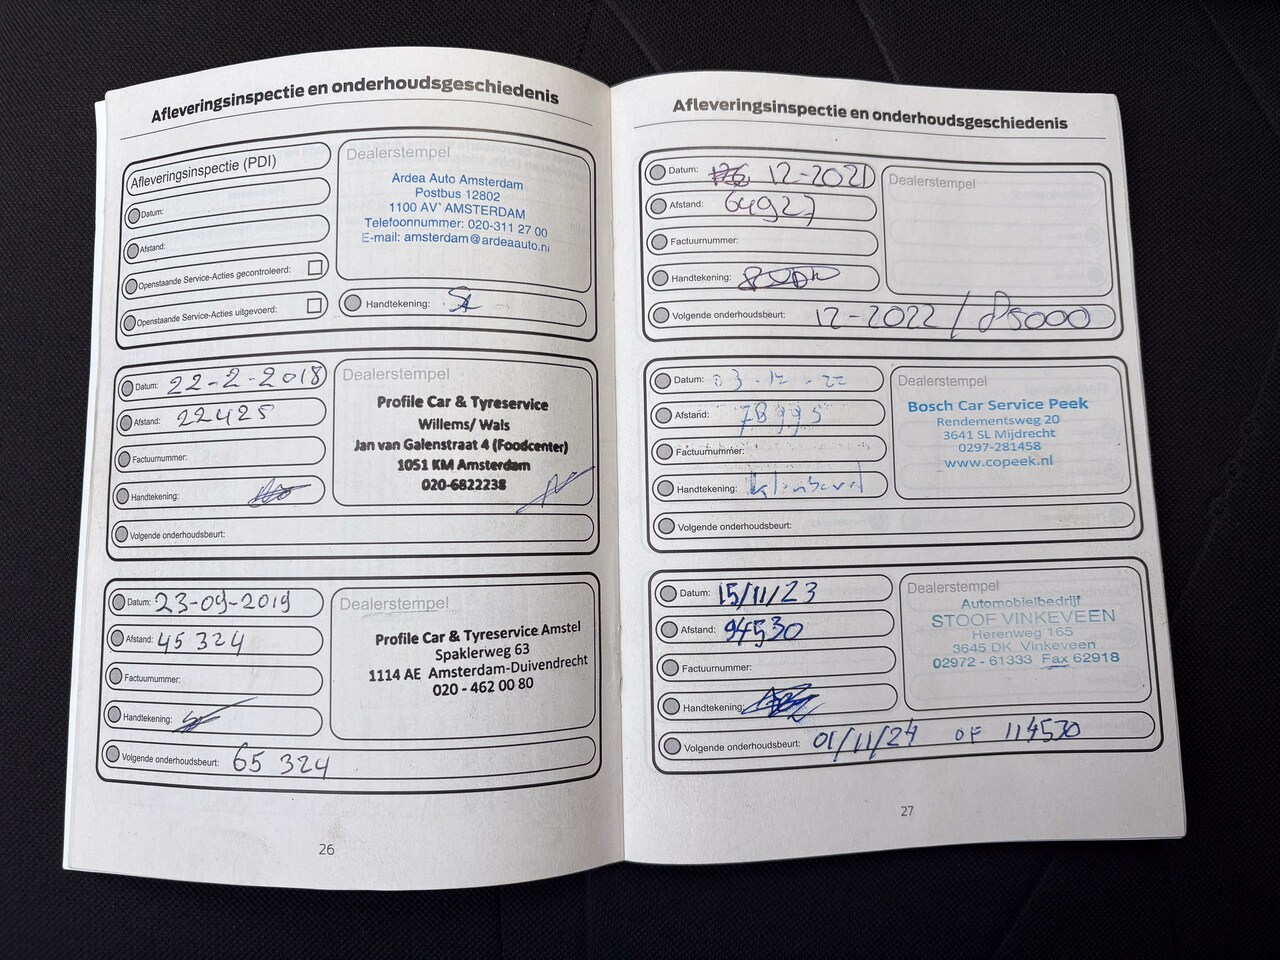 Afleveringsinspectie en onderhoudsgeschiedenis
Afleveringsinspectie (PDI)
Datum:
Afstand:
Openstaande Service-Acties gecontroleerd:
Openstaande Service-Acties uitgevoerd:
Dealerstempel
Ardea Auto Amsterdam
Postbus 12802
1100 AV' AMSTERDAM
Telefoonnummer: 020-311 27 00
E-mail: amsterdam@ardeaauto.nl
Handtekening:
Datum: 22-2-2018
Afstand: 22425
Factuurnummer:
Handtekening:
Volgende onderhoudsbeurt:
Dealerstempel
Profile Car & Tyreservice
Willems/ Wals
Jan van Galenstraat 4 (Foodcenter)
1051 KM Amsterdam
020-6822238
Datum: 23-09-2019
Afstand: 45 324
Factuurnummer:
Handtekening:
Volgende onderhoudsbeurt: 65 324
Dealerstempel
Profile Car & Tyreservice Amstel
Spaklerweg 63
1114 AE Amsterdam-Duivendrecht
020 - 462 00 80
26
Afleveringsinspectie en onderhoudsgeschiedenis
Datum: 12-2021
Afstand: 64927
Factuurnummer:
Handtekening:
Volgende onderhoudsbeurt: 12-2022 / 85000
Dealerstempel
Datum: 03-12-22
Afstand: 78995
Factuurnummer:
Handtekening:
Volgende onderhoudsbeurt:
Dealerstempel
Bosch Car Service Peek
Rendementsweg 20
3641 SL Mijdrecht
0297-281458
www.copeek.nl
Datum: 15/11/23
Afstand: 94530
Factuurnummer:
Handtekening:
Volgende onderhoudsbeurt: 01/11/24 OF 114530
Dealerstempel
Automobielbedrijf
STOOF VINKEVEEN
Herenweg 165
3645 DK Vinkeveen
02972 - 61333 Fax 62918
27